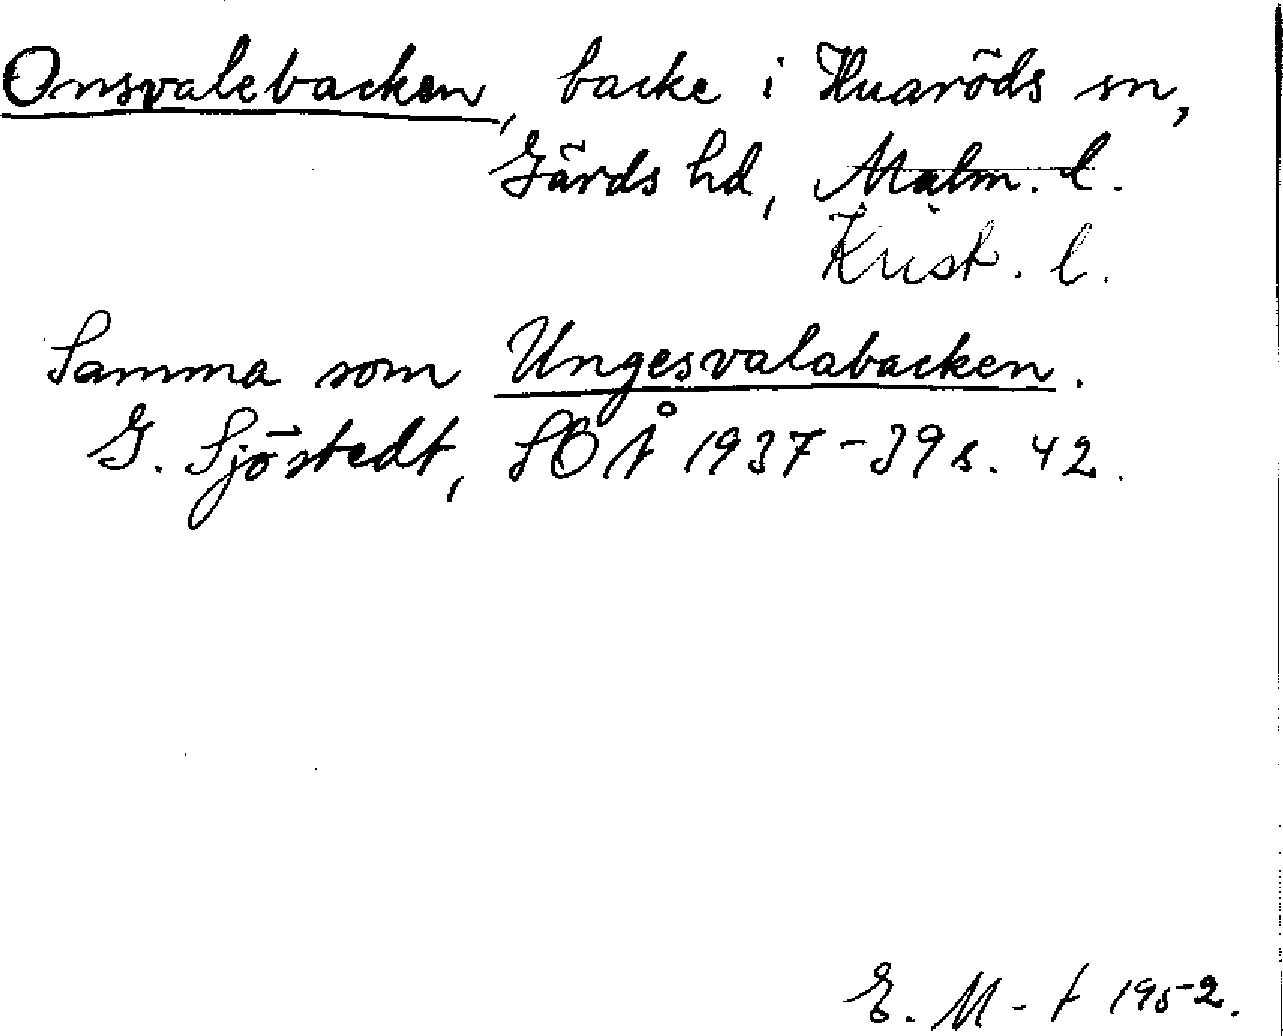 Onsvalebacken, backe i Huaröds sn,
Gärds hd, Malm. l.
Krist. l.
Samma som Ungesvalabacken.
G. Sjöstedt, SOÅ 1937-39 s. 42.
E. M-t 1952.